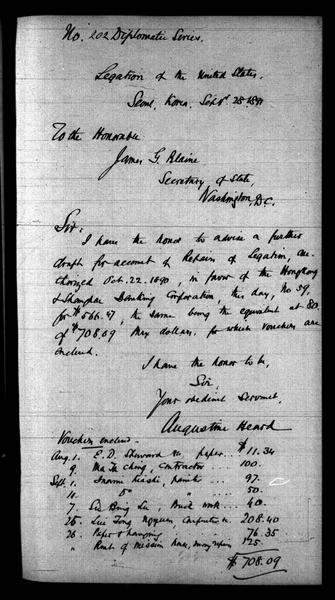 No. 202 Diplomatic Series.
Legation of the United States,
Seoul, Korea, Sept. 28 1891
To the Honorable
James G. Blaine
Secretary of State,
Washington, D.C.
Sir:
I have the honor to advise a further
draft for account of Repairs of Legation, au-
thorized Oct. 22. 1890, in favor of the Hongkong
& Shanghai Banking Corporation, this day, No 39,
for $566.47, the same being the equivalent at 80.
of $708.09 Mex dollars, for which vouchers are
enclosed.
I have the honor to be,
Sir,
Your obedient Servant,
Augustine Heard
Vouchers enclosed.
Aug. 1. E. D. paper $11.34
9. Contractor 100.
Sept. 1. 97.
11. Do " 50.
7. Brick work 40.
25. Tong 208.40
26. Paper & hanging 76.35
" Rent of mission house, during repairs 125.
$708.09